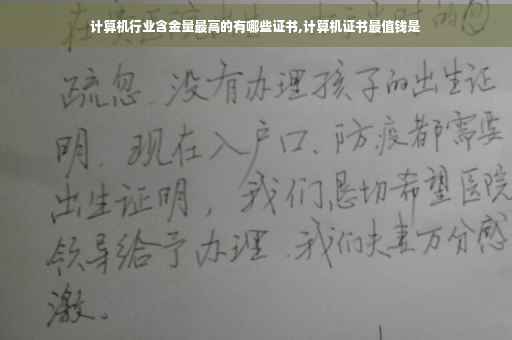 计算机行业含金量最高的有哪些证书,计算机证书最值钱是
疏忽、没有办理孩子的出生证
明、现在入户口、防疫都需要
出生证明，我们恳切希望医院
领导给予办理、我们夫妻万分感
激。